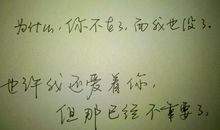 为什么,你不在了,而我也没了.
也许我还爱着你,
但那已经不重要了.